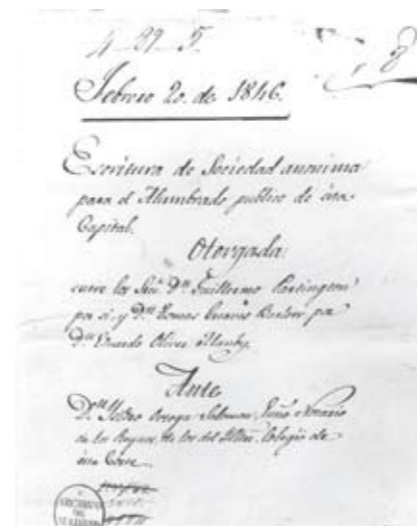 4-89-5
Febrero 20. de 1846.
Escritura de Sociedad anonima
para el Alumbrado publico de esta
Capital.
Otorgada
entre los Sres. Dn. Guillermo Partington
por si, y Dn. Tomas por
Dn. Eduardo Oliver Manby.
Ante
Dn. Arroyo Notario
de los Reynos, de los del Colegio de
esta Corte
ARCHIVO